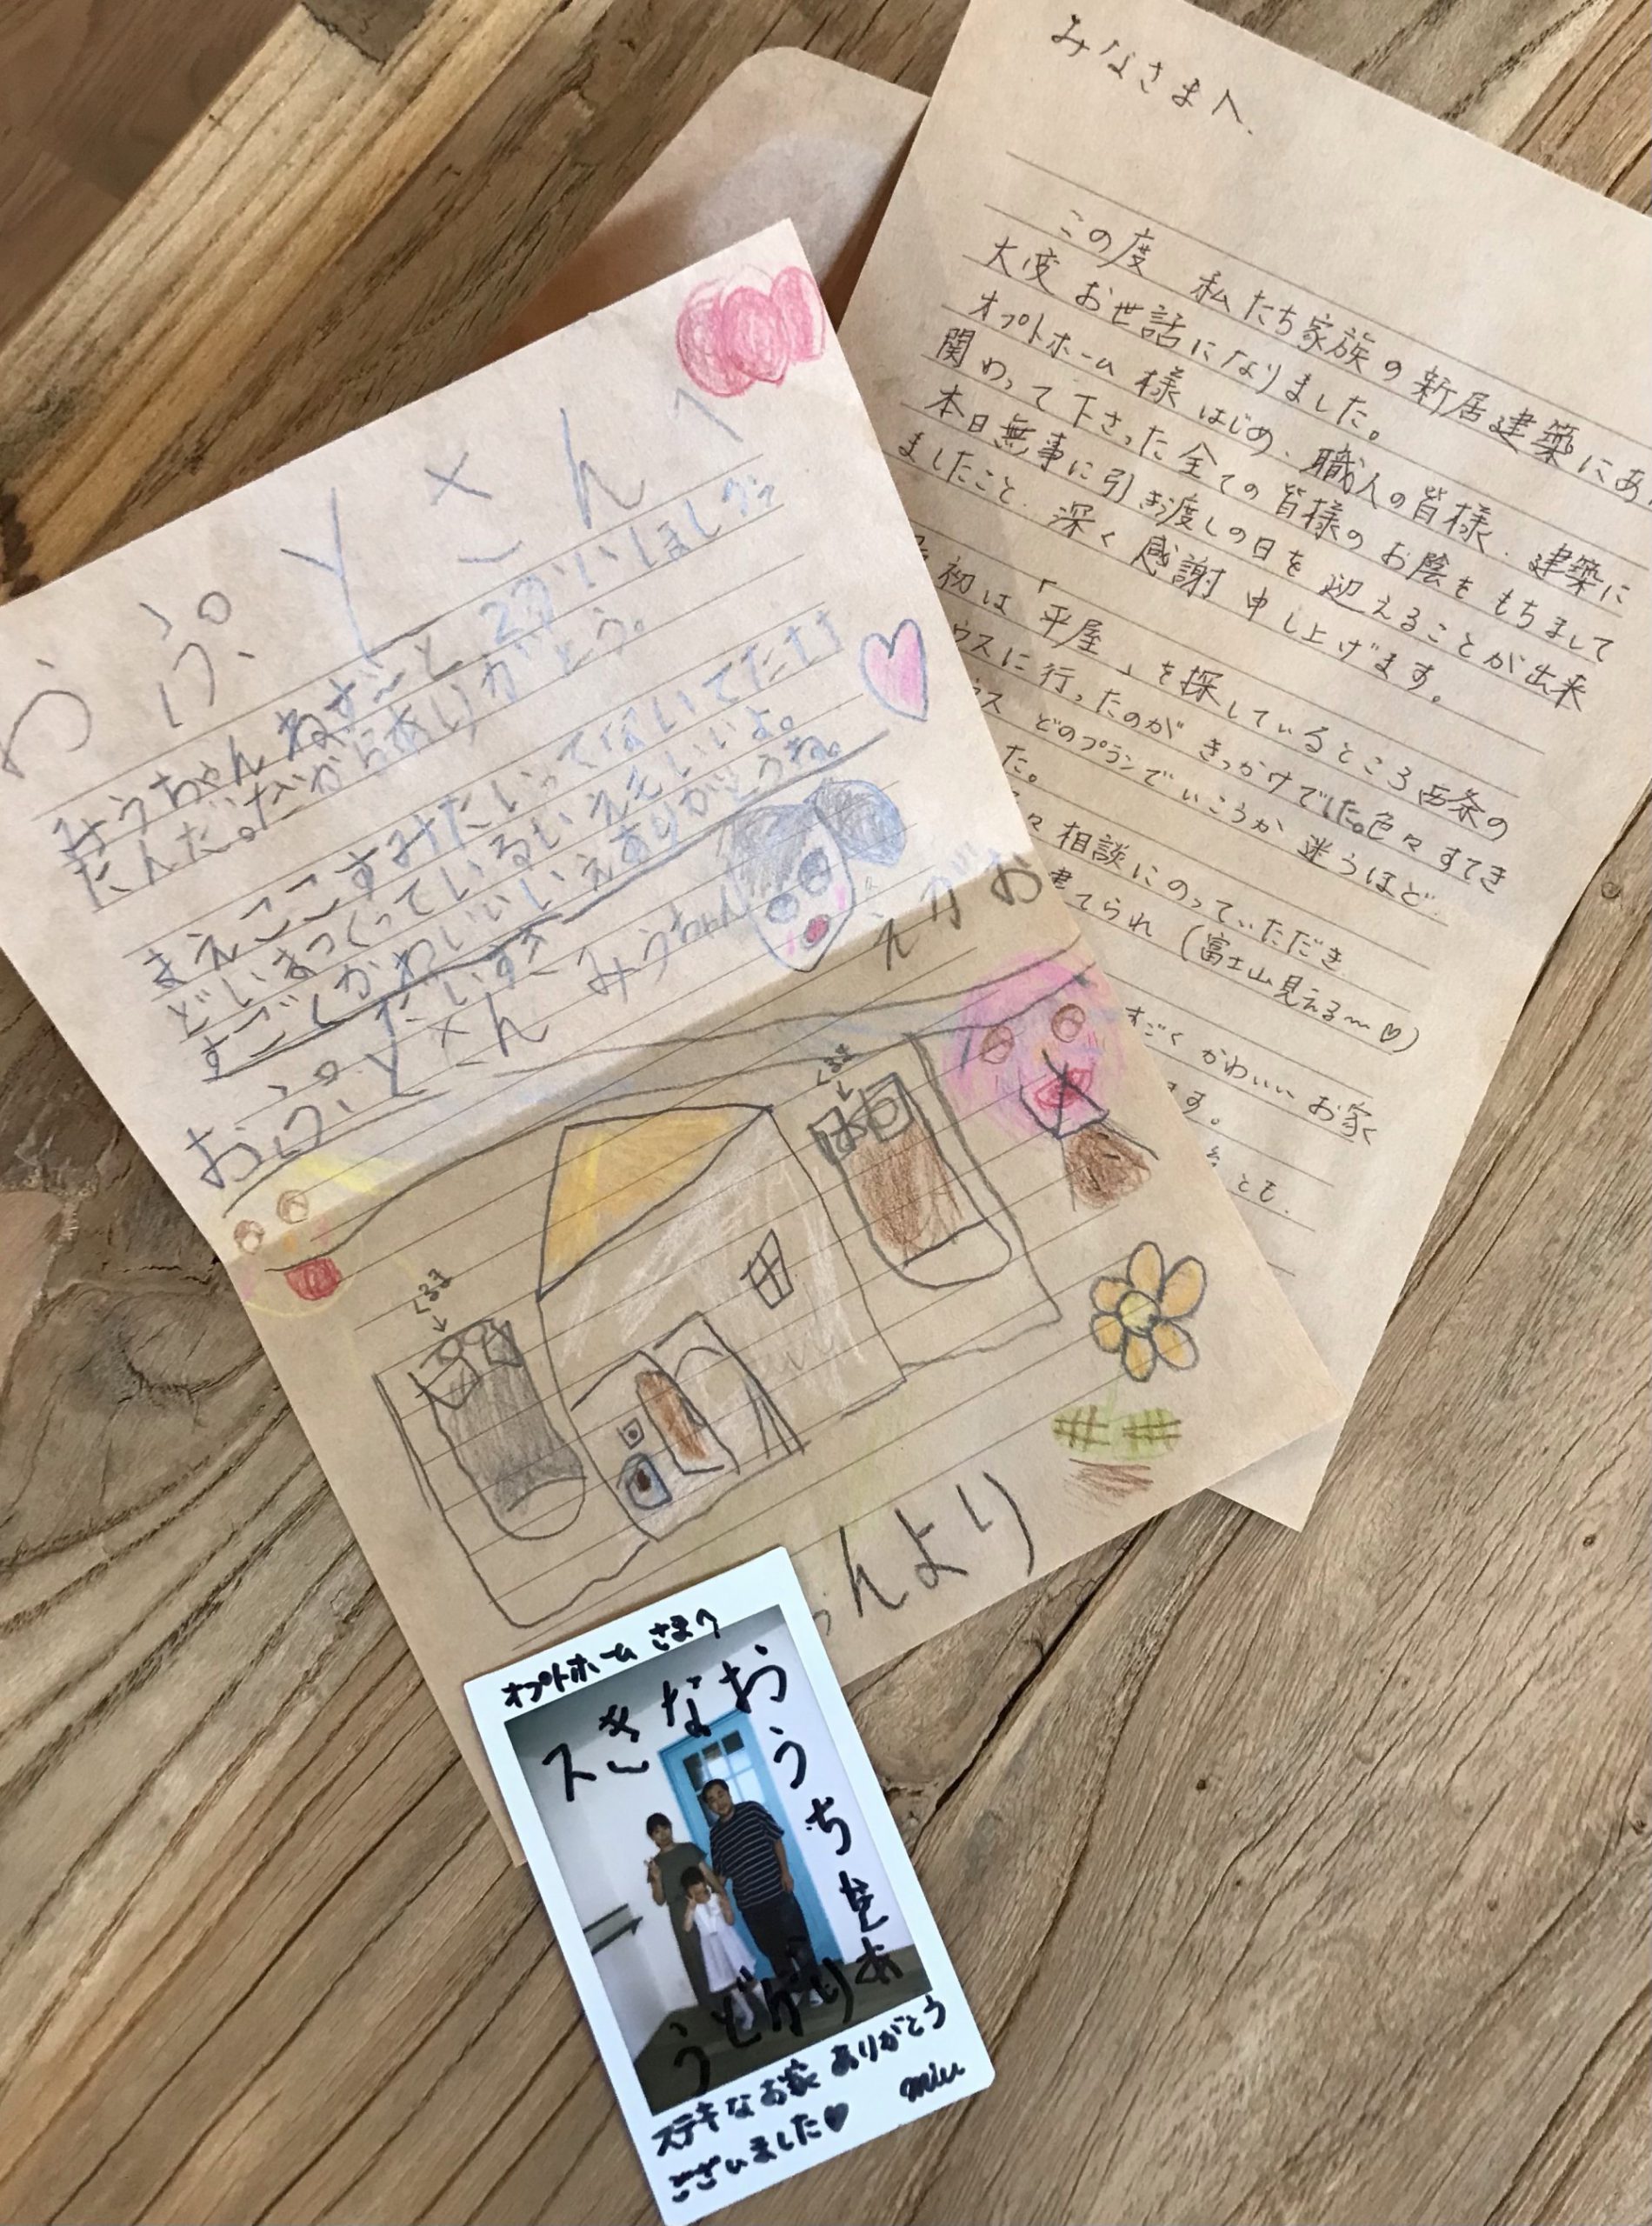 みなさまへ
この度 私たち家族の新居建築にあ
大変お世話になりました。
オプトホーム様はじめ、職人の皆様、建築に
関わって下さった全ての皆様のお陰をもちまして
本日無事に引き渡しの日を迎えることが出来
ましたこと、深く感謝申し上げます。
初は「平屋」を探しているところ西条の
ウスに行ったのがきっかけでした。色々すてき
ス どのプランでいこうか迷うほど
た。
々相談にのっていただき
建てられ (富士山見える〜♡)
すごくかわいいお家
す。
とも
おぷとさんへ
みうちゃんねずーと
たんだ。だからありがとう。
まえここすみたいってないてたけ
どいまつくっているいえもいいよ。
すごくかわいいいえありがとうね。
おぷとさん だいすき みうちゃん
えがお
くるま
くるま
んより
オプトホームさまへ
すきなおうちをありがとう
ステキなお家ありがとう
ございました♥
miu